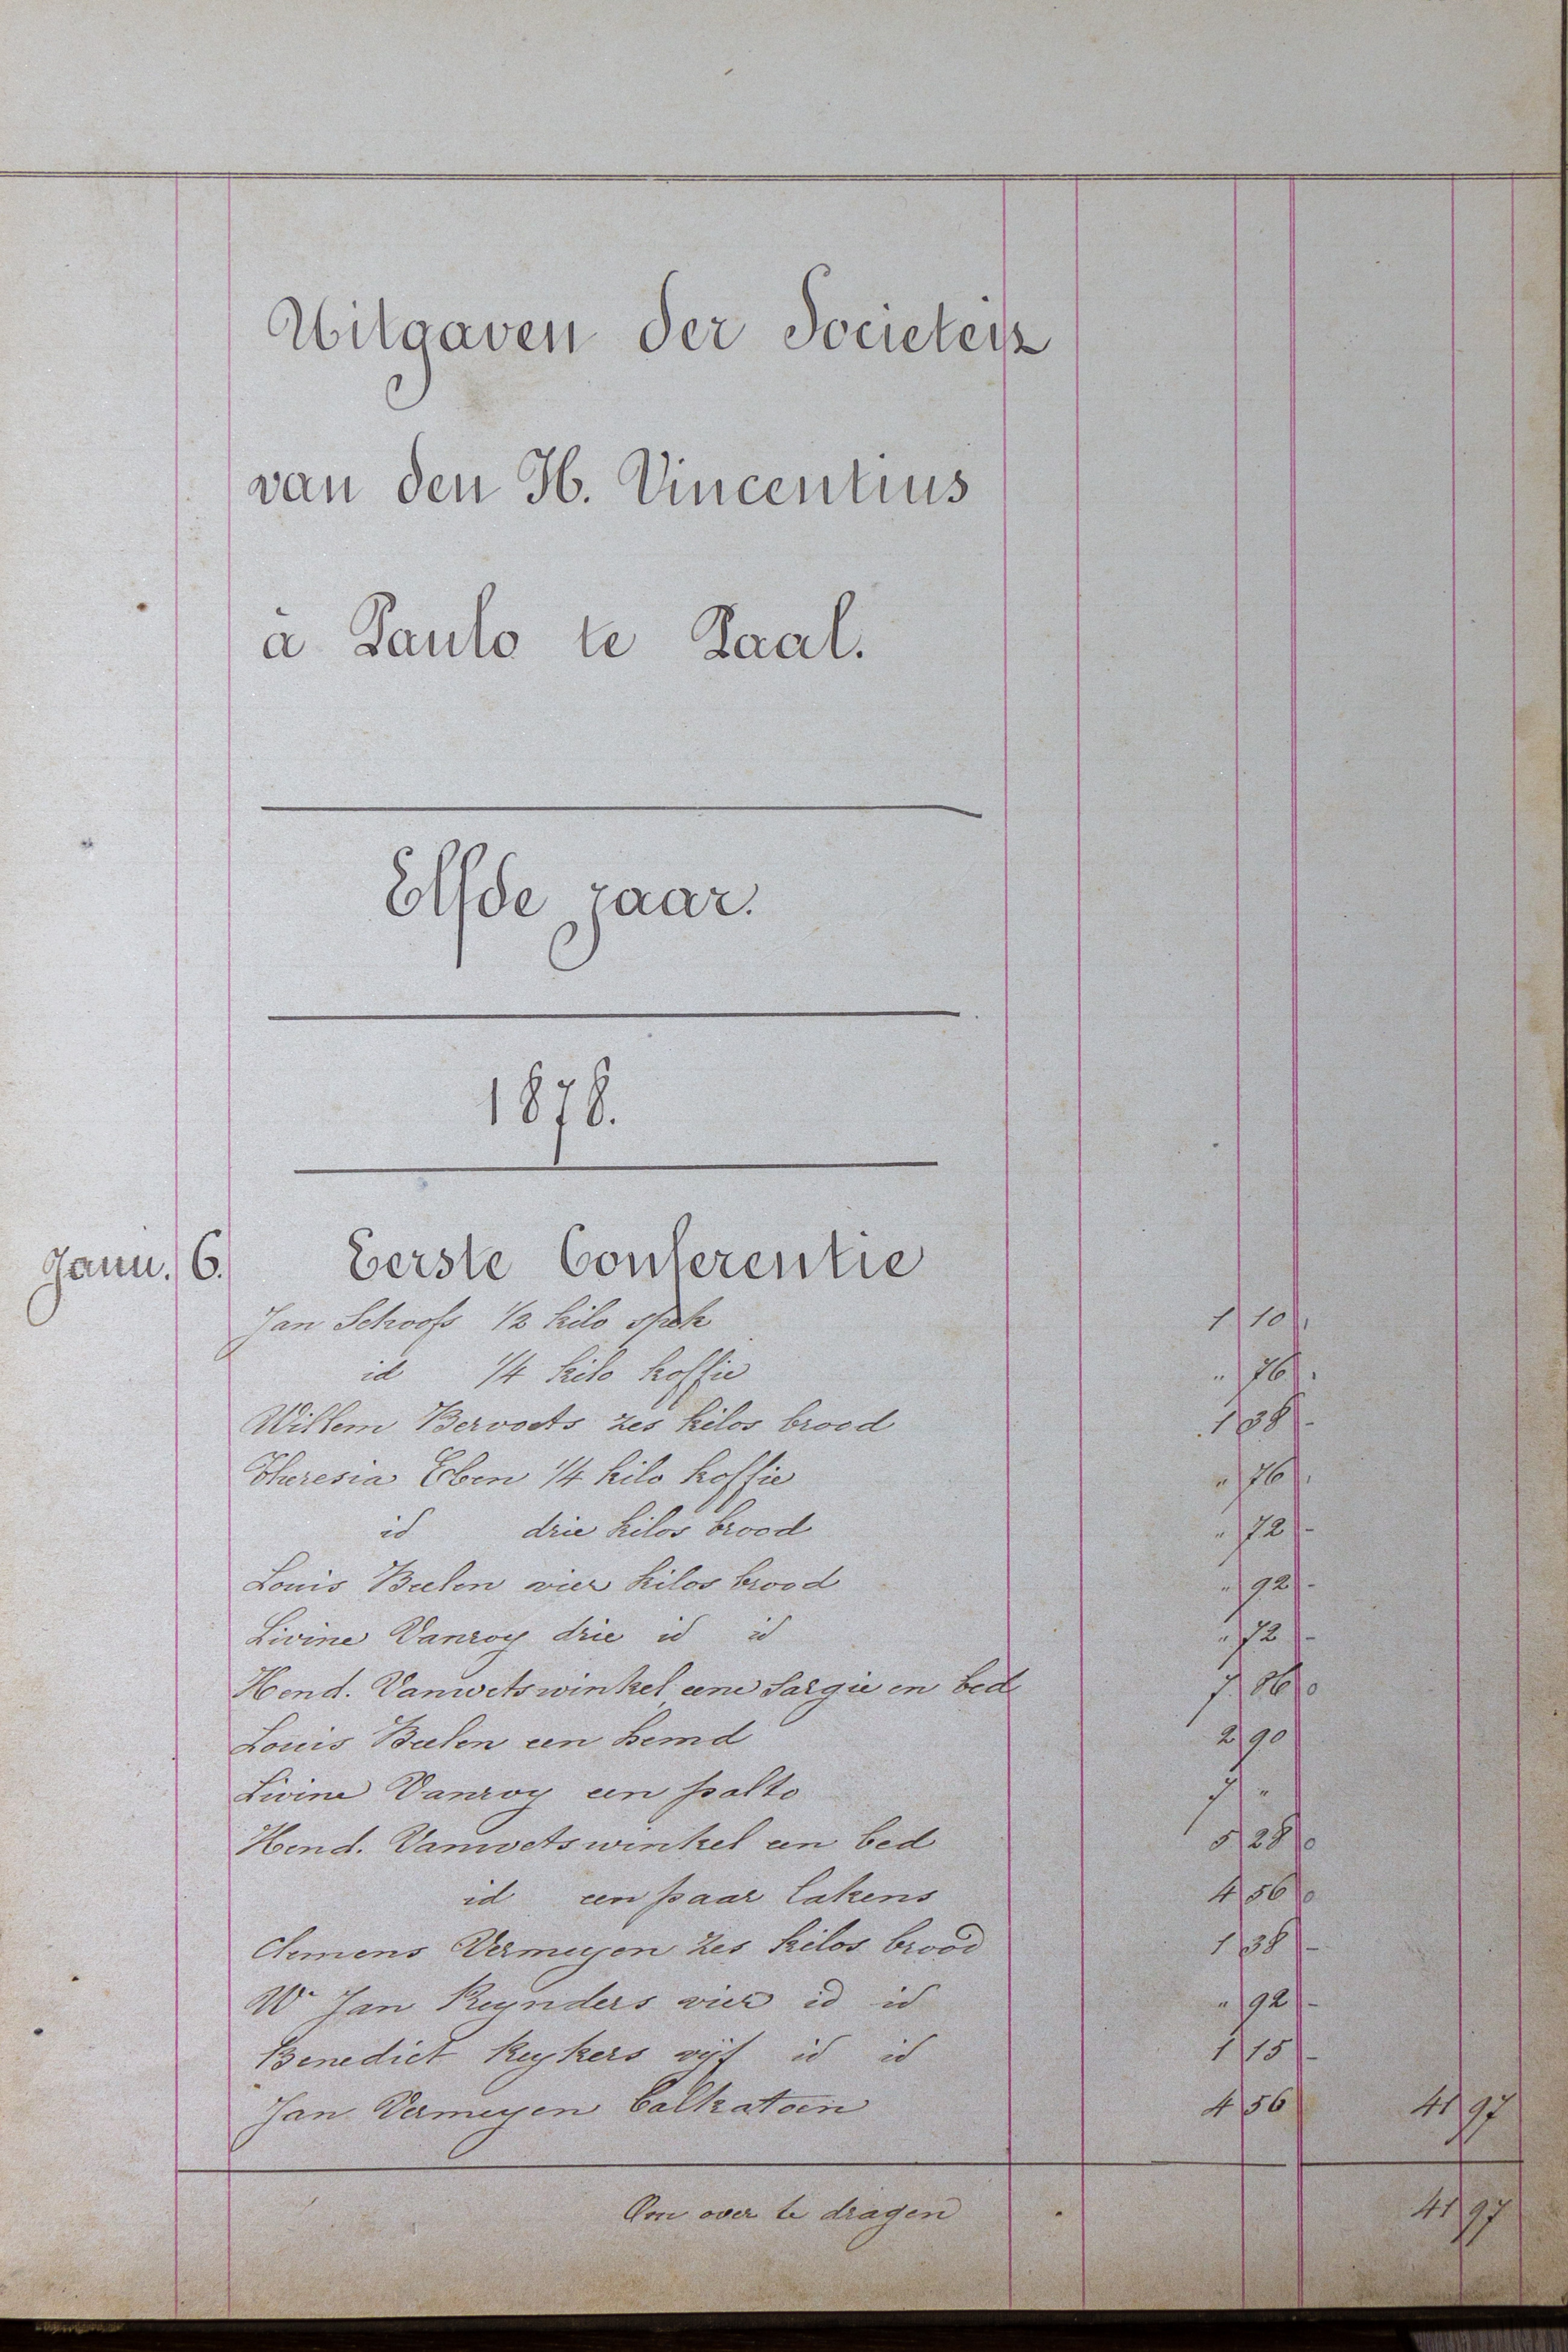 Uitgaven der Societeiz
van den H. Vincentius
à Paulo te Paal.
Elfde jaar.
1878.
Janu. 6. Eerste Conferentie
Jan Schoofs 1/2 kilo spek 1 10
id 1/4 kilo koffie " 76
Willem Bervoets zes kilos brood 1 38
Theresia Eben 1/4 kilo koffie " 76
id drie kilos brood " 72
Louis Beelen vier kilos brood " 92
Livine Vanroy drie id id " 72
Hend. Vanwetswinkel eene Sargie en bed 7 86
Louis Beelen een hemd 2 90
Livine Vanroy een palto 7 "
Hend. Vanwetswinkel een bed 5 28
id een paar lakens 4 56
Clemens Vermeyen zes kilos brood 1 38
We Jan Reynders vier id id " 92
Benedict Keykers vijf id id 1 15
Jan Vermeyen Calkatoen 4 56 41 97
Om over te dragen 41 97